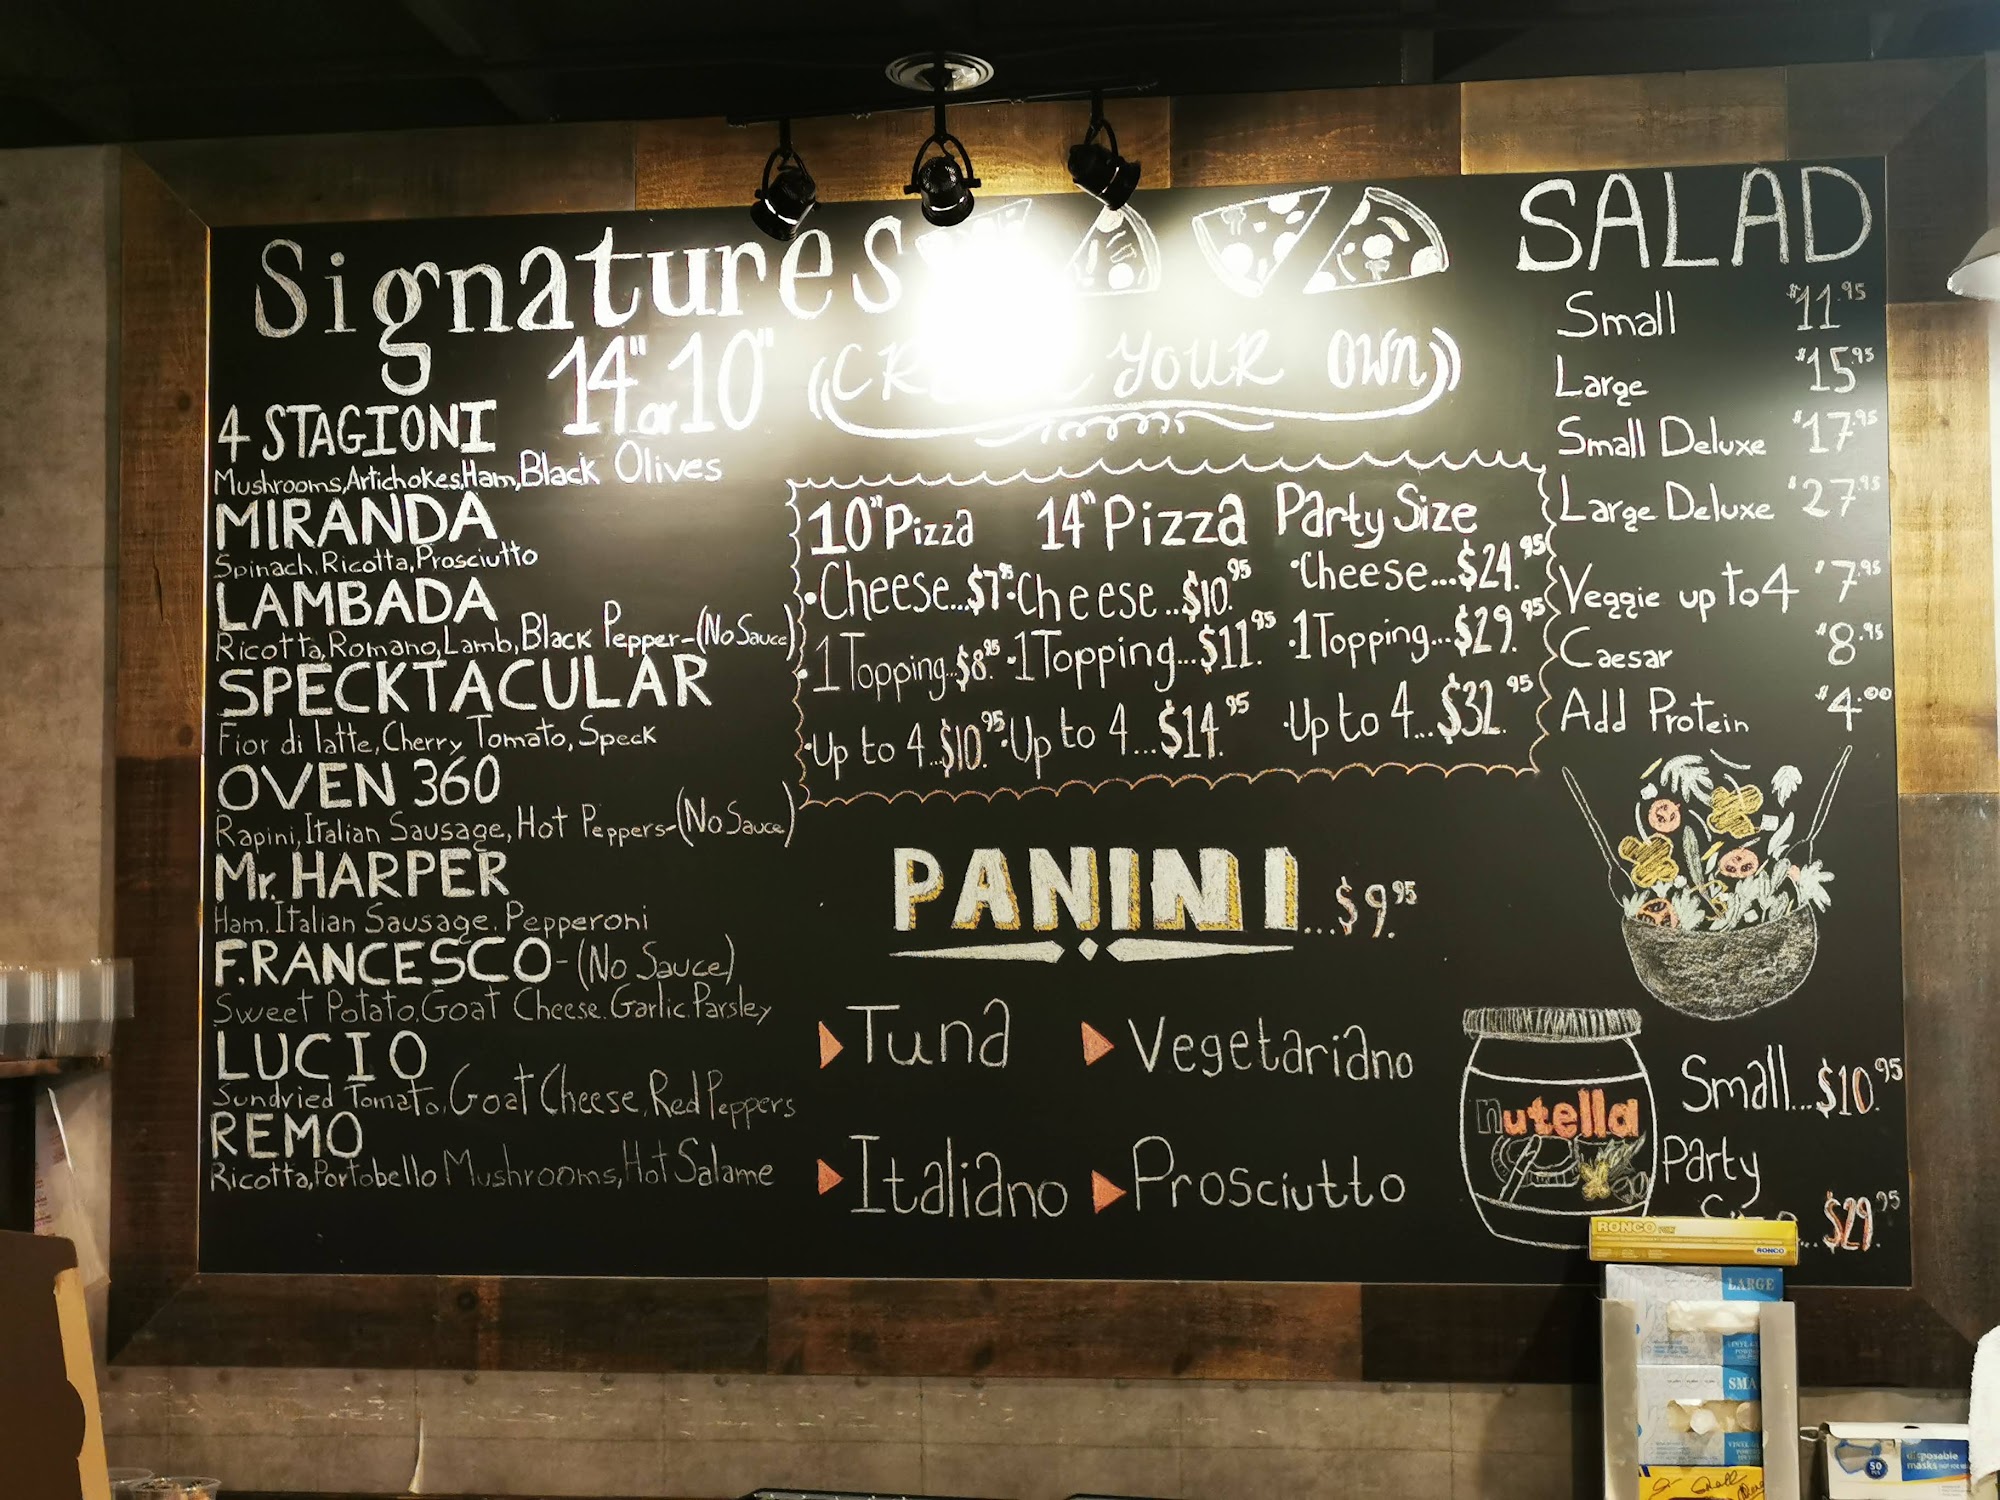 Signatures
14" or 10"
4 STAGIONI
Mushrooms, Artichokes, Ham, Black Olives
MIRANDA
Spinach, Ricotta, Prosciutto
LAMBADA
Ricotta, Romano, Lamb, Black Pepper-(No Sauce)
SPECKTACULAR
Fior di latte, Cherry Tomato, Speck
OVEN 360
Rapini, Italian Sausage, Hot Peppers-(No Sauce)
Mr. HARPER
Ham, Italian Sausage, Pepperoni
F.RANCESCO-(No Sauce)
Sweet Potato, Goat Cheese, Garlic, Parsley
LUCIO
Sundried Tomato, Goat Cheese, Red Peppers
REMO
Ricotta, Portobello Mushrooms, Hot Salame
YOUR OWN
10" Pizza
•Cheese...$7.95
•1 Topping...$8.95
•Up to 4...$10.95
14" Pizza
•Cheese...$10.95
•1 Topping...$11.95
•Up to 4...$14.95
Party Size
•Cheese...$24.95
•1 Topping...$29.95
•Up to 4...$32.95
PANINI...$9.95
Tuna
Vegetariano
Italiano
Prosciutto
SALAD
Small $11.95
Large $15.95
Small Deluxe $17.95
Large Deluxe $27.95
Veggie up to 4 $7.95
Caesar $8.95
Add Protein $4.00
nutella
Small...$10.95
Party
Size...$29.95
RONCO
RONCO
LARGE
SMA
disposable
masks
50